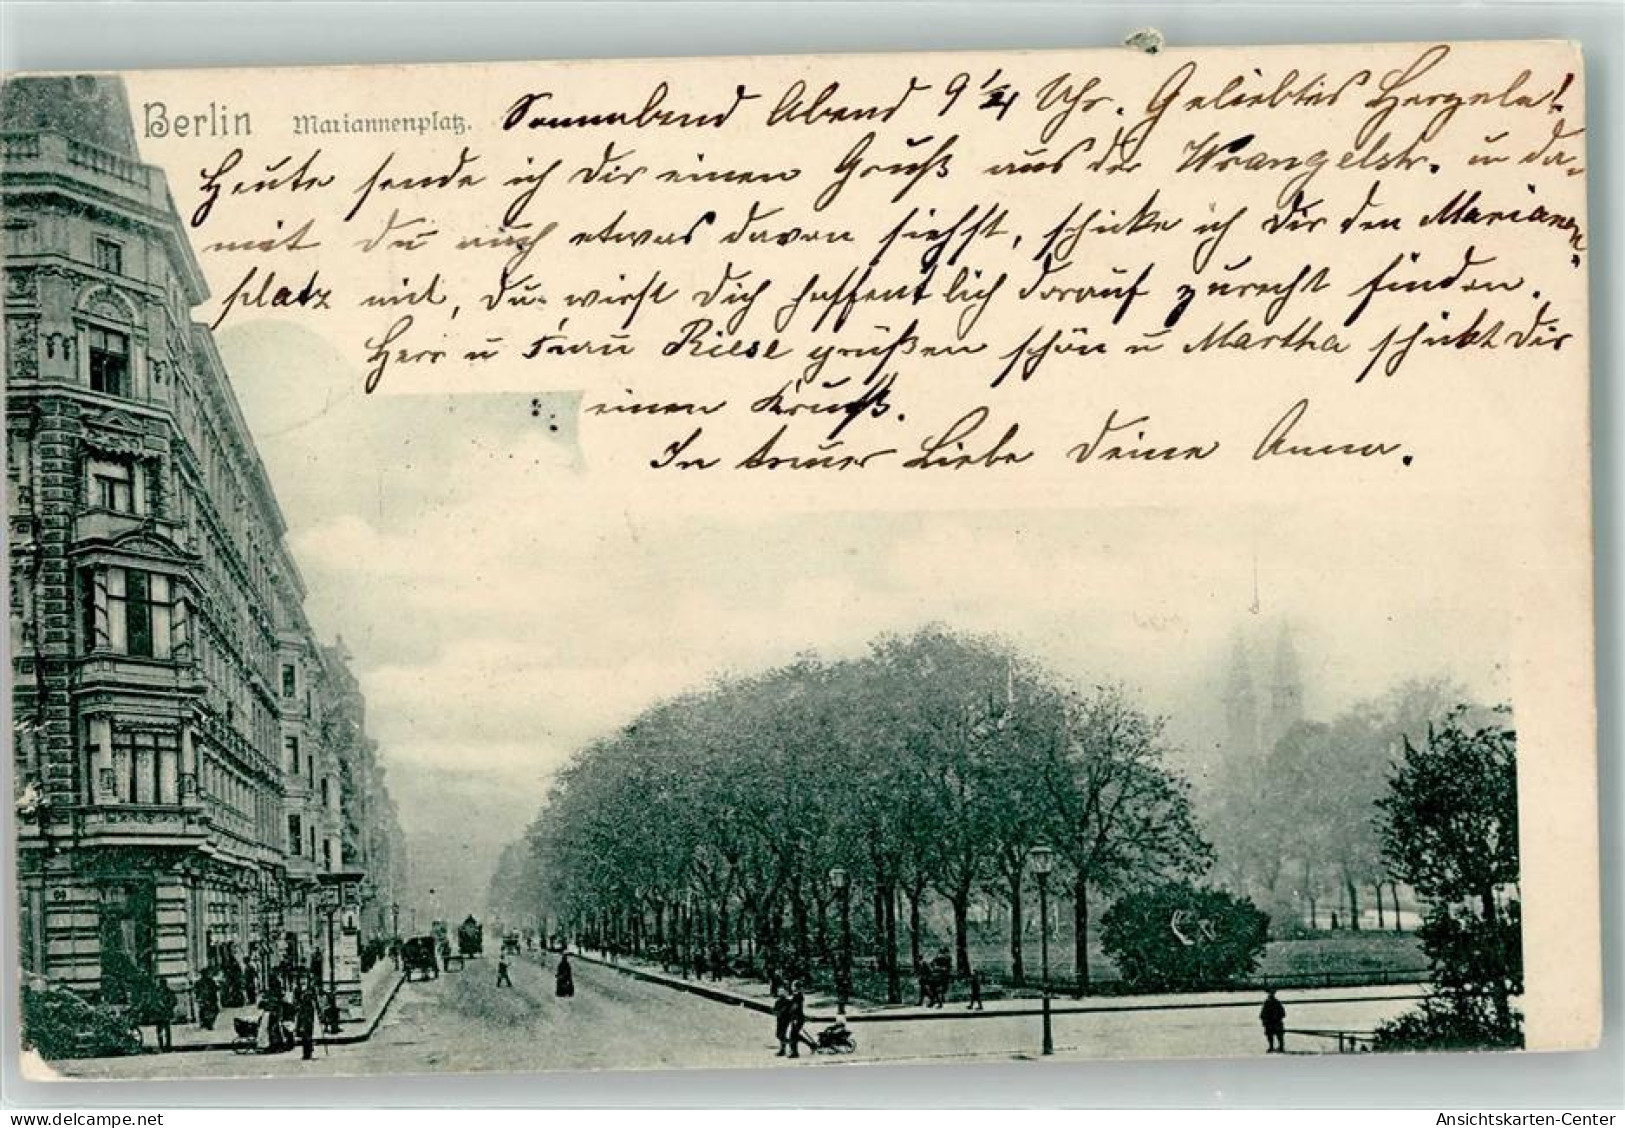 Berlin Mariannenplatz. Sonnabend Abend 9 1/4 Uhr. Geliebtes Herzele!
Heute sende ich Dir einen Gruß aus der Wrangelstr. u da-
mit Du auch etwas davon siehst, schicke ich Dir den Mariannen-
platz mit, Du wirst Dich hoffentlich darauf zurecht finden.
Herr u Frau Riese grüßen schön u Martha schickt Dir
einen Kruß.
In treuer Liebe Deine Anna.
delcampe.net
Ansichtskarten-Center